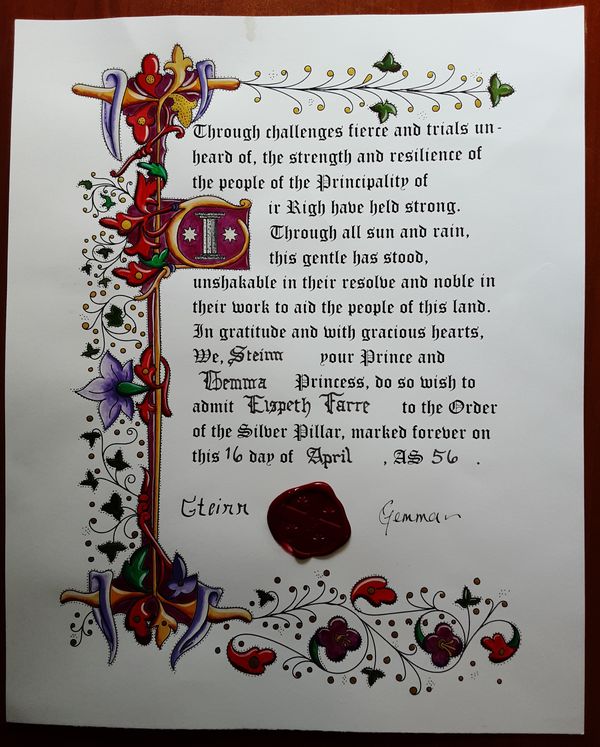 Through challenges fierce and trials un-
heard of, the strength and resilience of
the people of the Principality of
Tir Righ have held strong.
Through all sun and rain,
this gentle has stood,
unshakable in their resolve and noble in
their work to aid the people of this land.
In gratitude and with gracious hearts,
We, Steinn your Prince and
Gemma Princess, do so wish to
admit Elspeth Farre to the Order
of the Silver Pillar, marked forever on
this 16 day of April , AS 56 .
Steinn Gemma